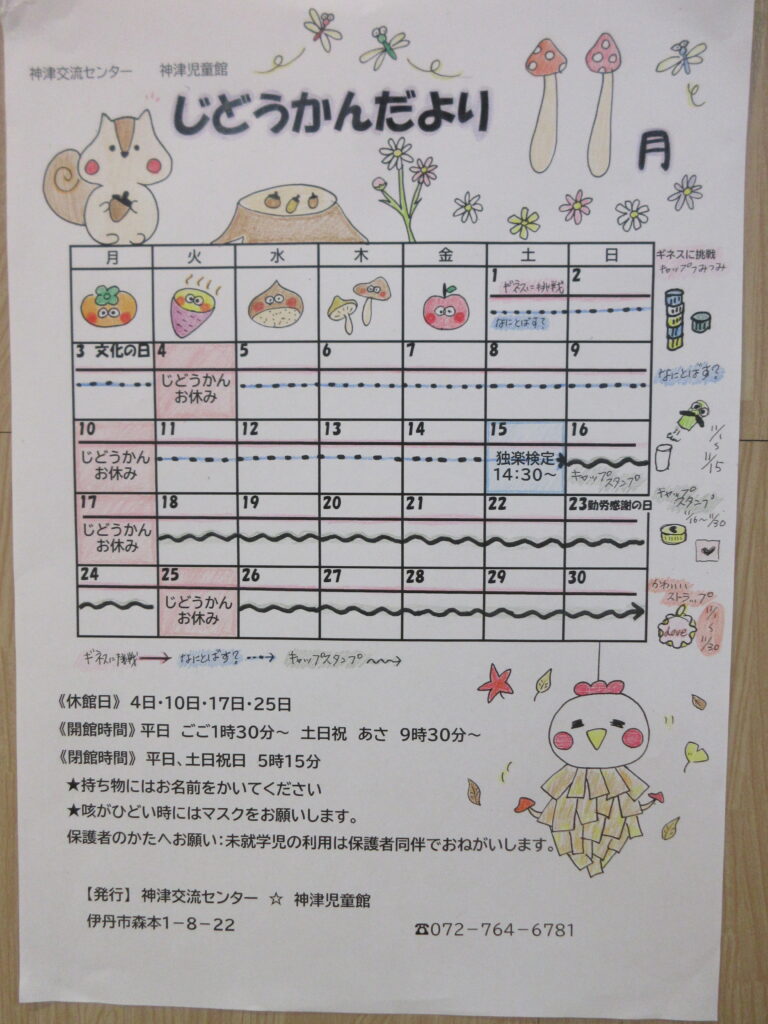 神津交流センター 神津児童館
じどうかんだより
月
月 火 水 木 金 土 日
1 2
ギネスに挑戦
なにとばす?
3 文化の日 4 5 6 7 8 9
じどうかん
お休み
10 11 12 13 14 15 16
じどうかん
お休み
独楽検定
14:30～
キャップ
スタンプ
17 18 19 20 21 22 23勤労感謝の日
じどうかん
お休み
24 25 26 27 28 29 30
じどうかん
お休み
ギネスに挑戦
キャップつみつみ
なにとばす?
11/1
11/15
キャップ
スタンプ
11/16～11/30
かわいい
ストラップ
Love
11/1
11/30
ギネスに挑戦 なにとばす? キャップスタンプ
《休館日》 4日・10日・17日・25日
《開館時間》平日 ごご1時30分～ 土日祝 あさ 9時30分～
《閉館時間》 平日、土日祝日 5時15分
★持ち物にはお名前をかいてください
★咳がひどい時にはマスクをお願いします。
保護者のかたへお願い：未就学児の利用は保護者同伴でおねがいします。
【発行】 神津交流センター ☆ 神津児童館
伊丹市森本1－8－22 ☎072－764－6781